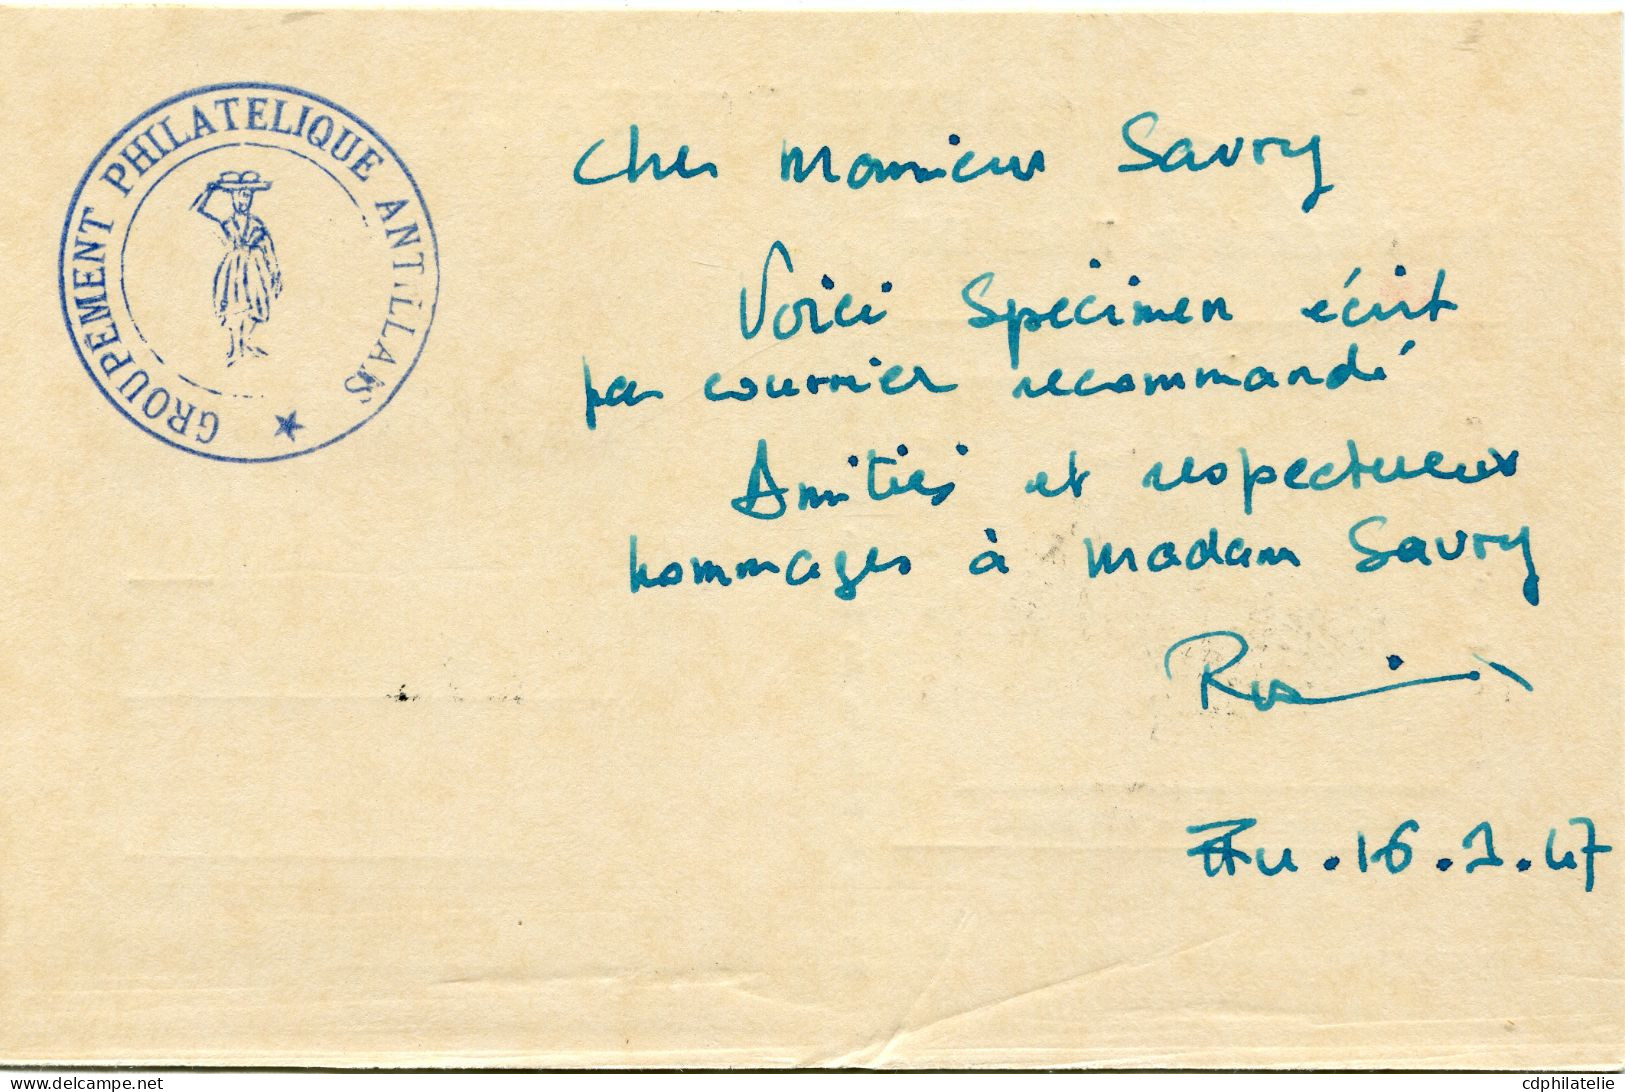 GROUPEMENT PHILATELIQUE ANTILLAIS
Cher Monsieur Savry
Voici Spécimen écrit
par courrier recommandé
Amitiés et respectueux
hommages à Madam Savry
16.1.47
cdphilatelie